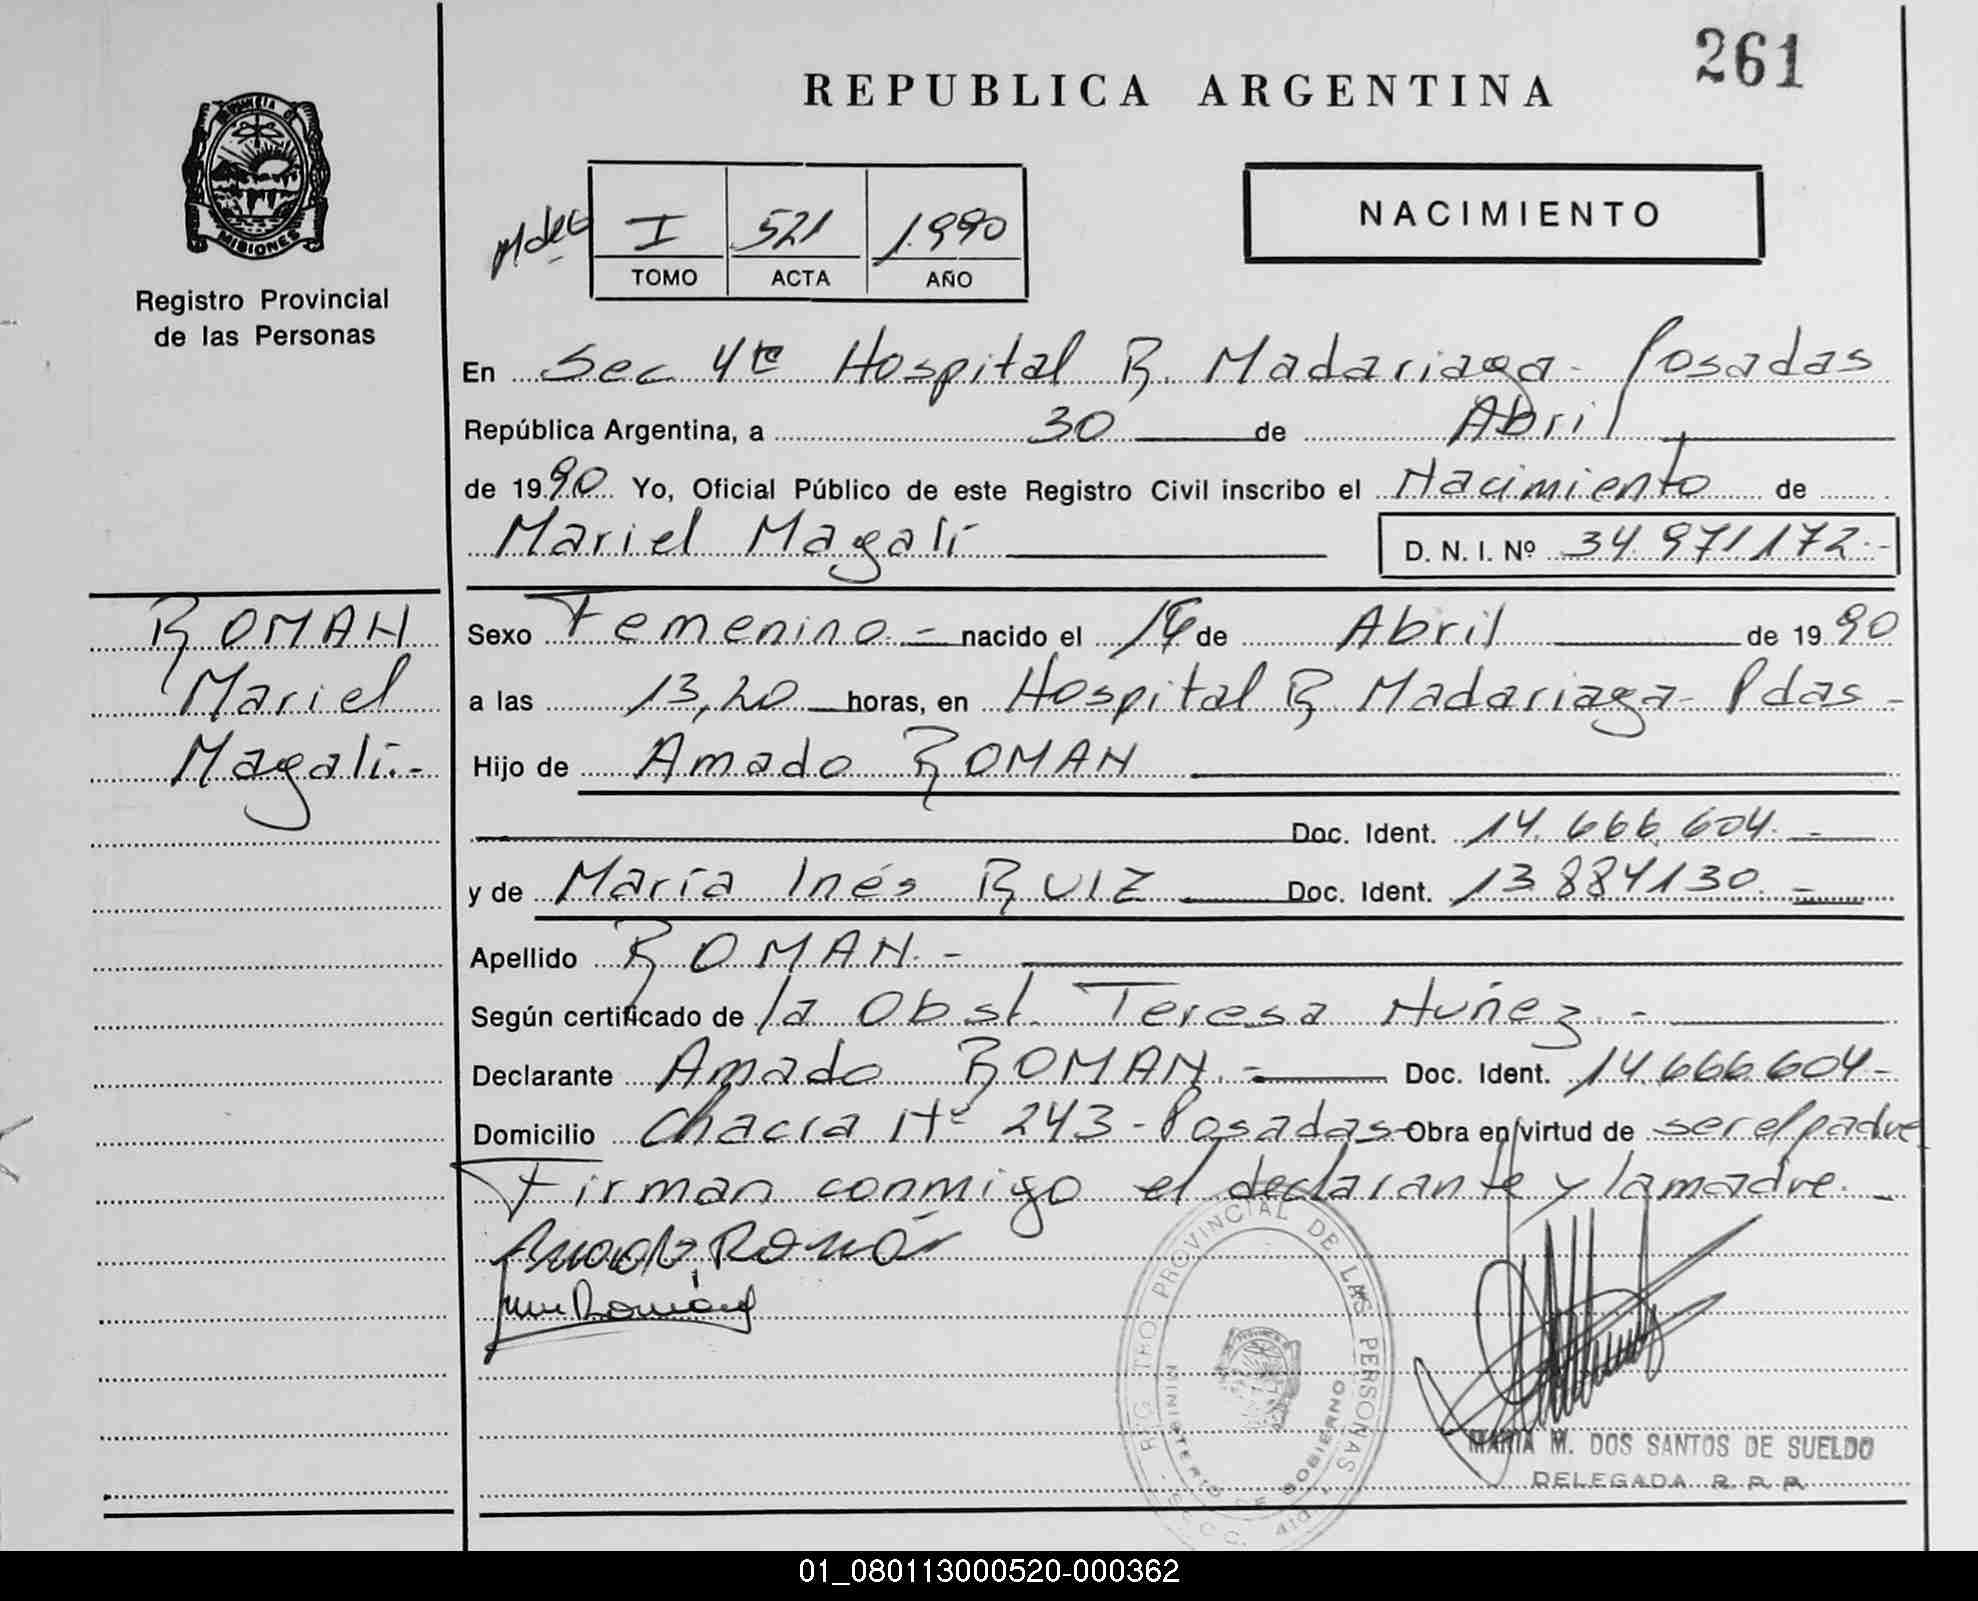 261
REPUBLICA ARGENTINA
NACIMIENTO
PROVINCIA DE
MISIONES
Registro Provincial
de las Personas
I 521 1.990
TOMO ACTA AÑO
En Sec 4ta Hospital R. Madariaga - Posadas
República Argentina, a 30 de Abril
de 1990 Yo, Oficial Público de este Registro Civil inscribo el Nacimiento de
Mariel Magalí D. N. I. Nº 34.971.172.-
ROMAN
Mariel
Magalí.-
Sexo Femenino.- nacido el de Abril de 1990
a las 13,20 horas, en Hospital R. Madariaga - Pdas -
Hijo de Amado ROMAN
Doc. Ident. 14.666.604.-
y de María Inés RUIZ Doc. Ident. 13.884.130.-
Apellido ROMAN.-
Según certificado de la Obst. Teresa Nuñez.-
Declarante Amado ROMAN.- Doc. Ident. 14.666.604-
Domicilio Chacra Nº 243 - Posadas - Obra en virtud de ser el padre
Firman conmigo el declarante y la madre.-
Amado Román
REGISTRO PROVINCIAL DE LAS PERSONAS
MINISTERIO DE GOBIERNO
MARIA M. DOS SANTOS DE SUELDO
DELEGADA R. P. P.
01_080113000520-000362